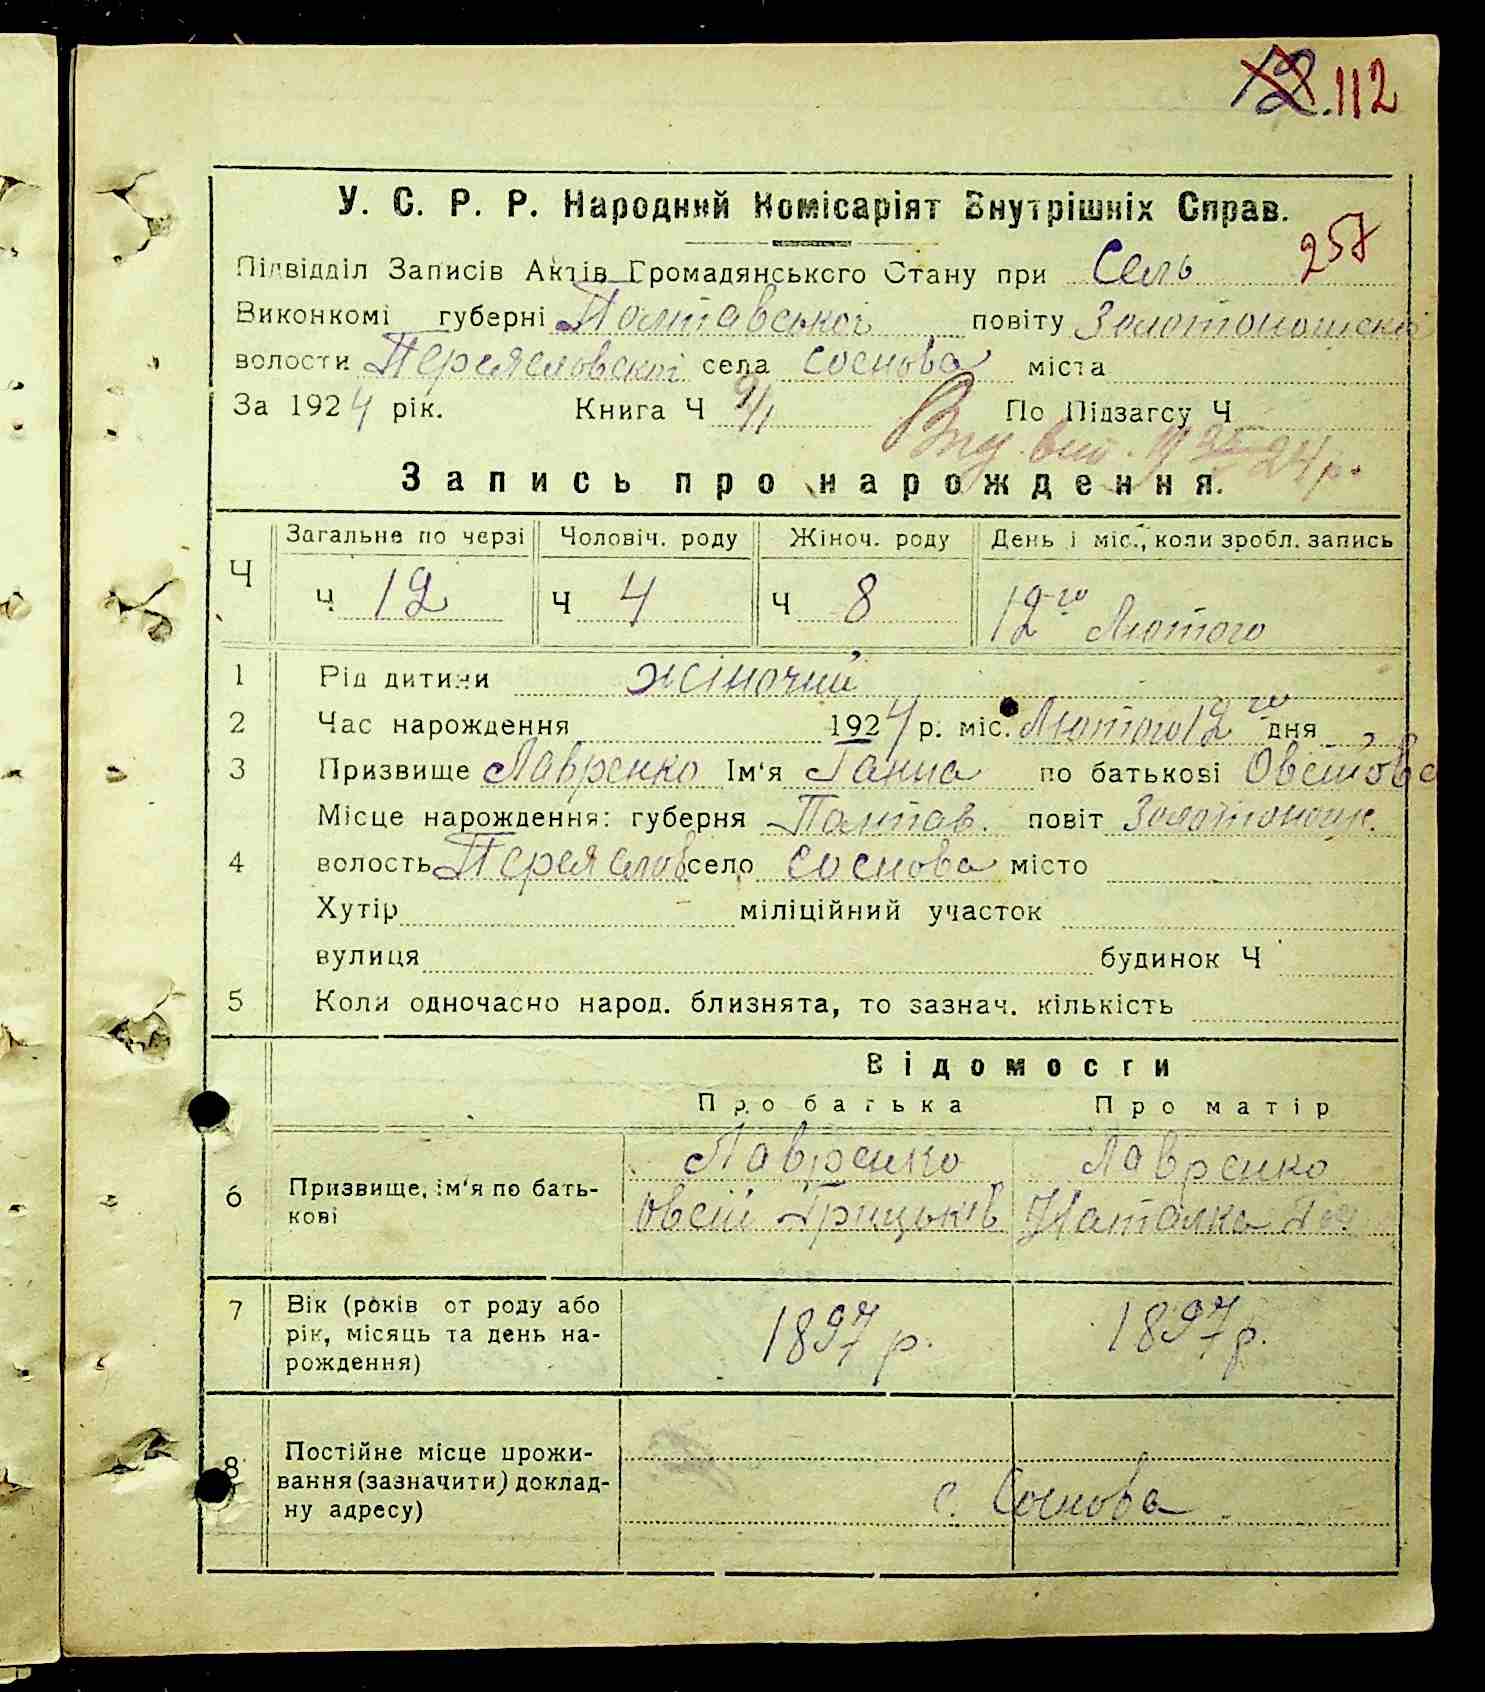 12. 112
У. С. Р. Р. Народний Комісаріят Внутрішніх Справ.
257
Підвідділ Записів Актів Громадянського Стану при Сель
Виконкомі губерні Полтавської повіту Золотоношскої
волости Переясловскої села Соснова міста
За 1924 рік. Книга Ч 9/1 По Підзагсу Ч
24 р.
Запись про народження.
Ч Загальне по черзі Чоловіч. роду Жіноч. роду День і міс., коли зробл. запись
Ч 12 Ч 4 Ч 8 12го Лютого
1 Рід дитини жіночий
2 Час народження 1924 р. міс. Лютого 12го дня
3 Призвище Лавренко Ім'я Ганна по батькові Овсіїова
Місце народження: губерня Полтав. повіт Золотонош.
4 волость Переяслов село Соснова місто
Хутір міліційний участок
вулиця будинок Ч
5 Коли одночасно народ. близнята, то зазнач. кількість
Відомости
Про батька Про матір
Лавренко Лавренко
6 Призвище, ім'я по бать-
кові
Овсій Грицьків Наталка
7 Вік (років от роду або
рік, місяць та день на-
рождення)
1897 р. 1897 р.
8 Постійне місце прожи-
вання (зазначити) доклад-
ну адресу)
с. Соснова